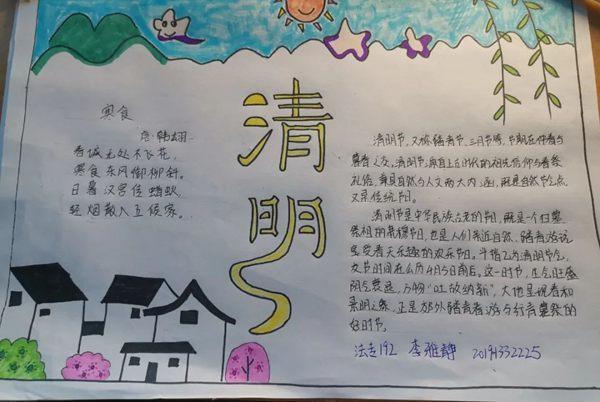 寒食
唐·韩翃
春城无处不飞花，
寒食东风御柳斜。
日暮汉宫传蜡烛，
轻烟散入五侯家。
清明
清明节，又称踏青节、三月节等，节期在仲春与
暮春之交。清明节，源自上古时代的祖先信仰与春祭
礼俗，兼具自然与人文两大内涵，既是自然节气点
又是传统节日。
清明节是中华民族古老的节日，既是一个扫墓
祭祖的肃穆节日，也是人们亲近自然、踏青游玩
享受春天乐趣的欢乐节日。斗指乙为清明节气，
交节时间在公历4月5日前后。这一时节，生气旺盛
阴气衰退，万物"吐故纳新"，大地呈现春和
景明之象，正是郊外踏青春游与行青墓祭的
好时节。
法志192 李雅静 20191332225